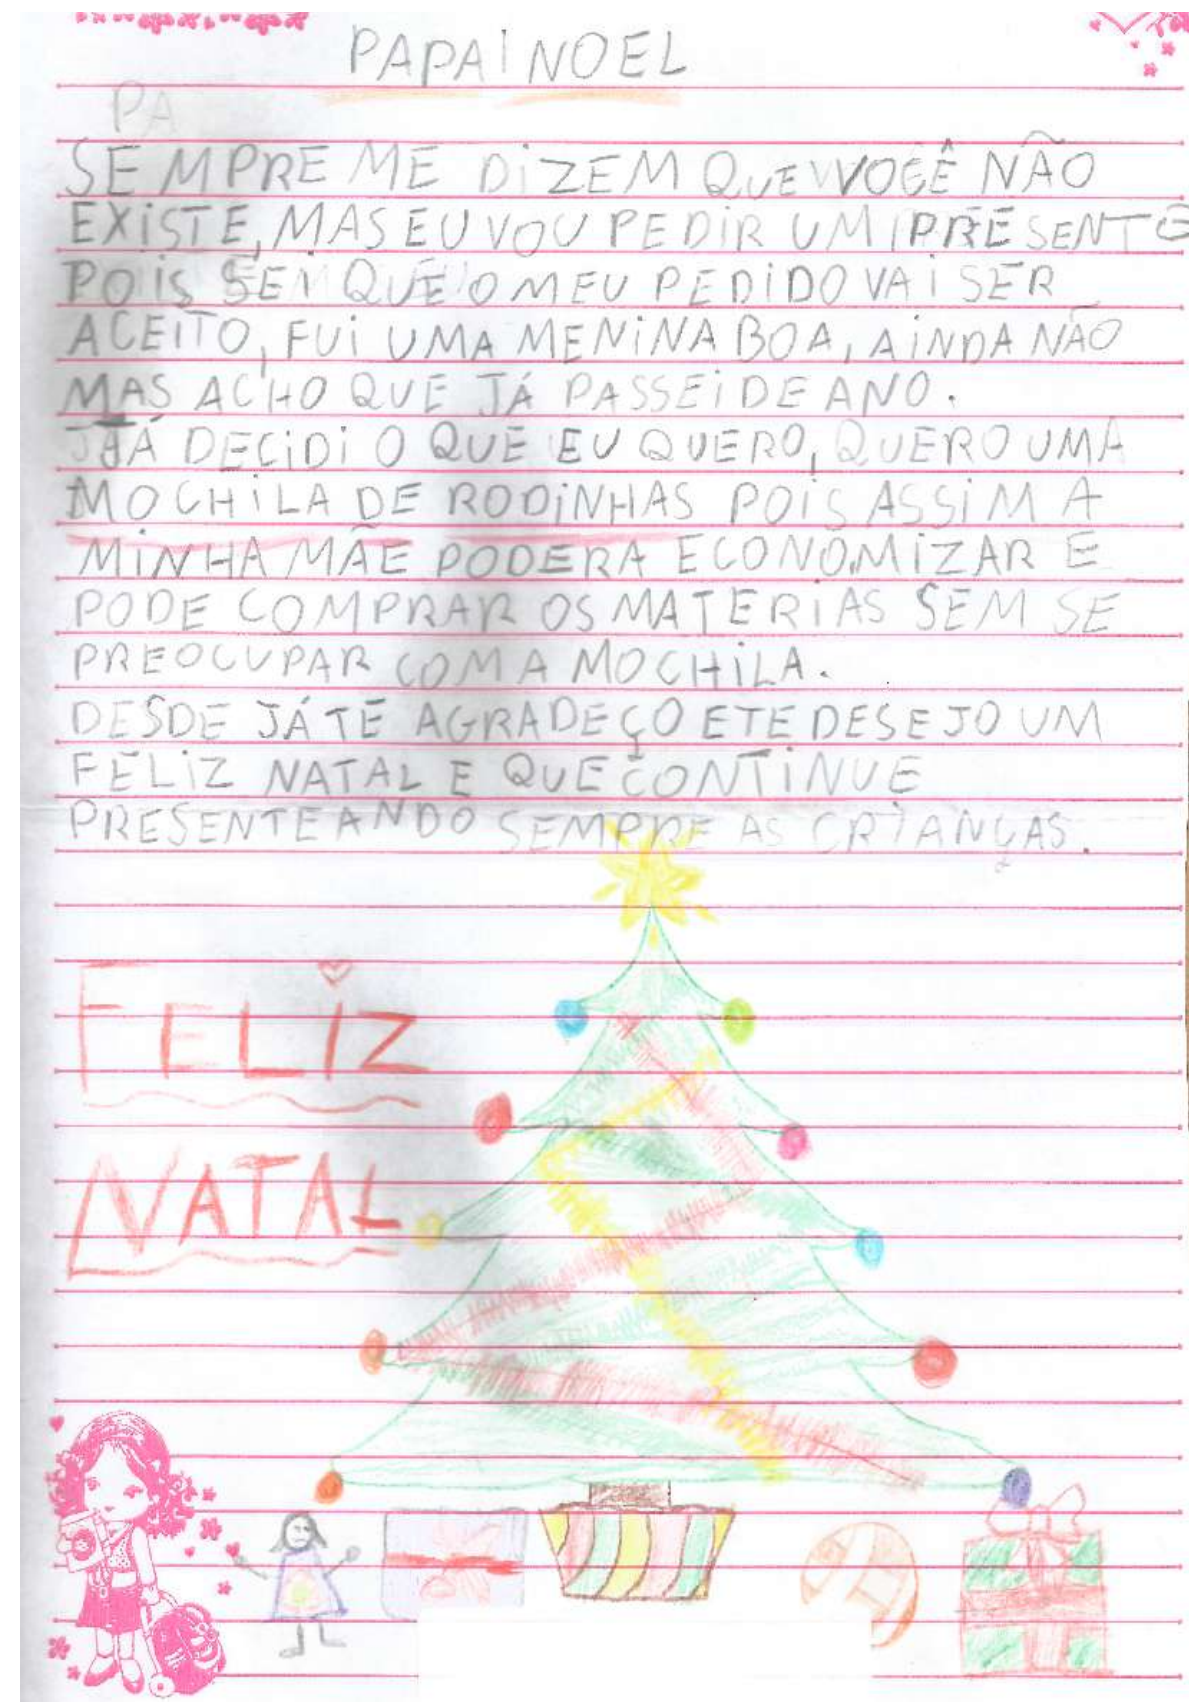 PAPAI NOEL
PA
SEMPRE ME DIZEM QUE VOCÊ NÃO
EXISTE, MAS EU VOU PEDIR UM PRESENTE
POIS SEI QUE O MEU PEDIDO VAI SER
ACEITO, FUI UMA MENINA BOA, AINDA NÃO
MAS ACHO QUE JÁ PASSEI DE ANO.
JÁ DECIDI O QUE EU QUERO, QUERO UMA
MOCHILA DE RODINHAS POIS ASSIM A
MINHA MÃE PODERA ECONOMIZAR E
PODE COMPRAR OS MATERIAS SEM SE
PREOCUPAR COM A MOCHILA.
DESDE JÁ TE AGRADEÇO E TE DESEJO UM
FELIZ NATAL E QUE CONTINUE
PRESENTEANDO SEMPRE AS CRIANÇAS.
FELIZ
NATAL